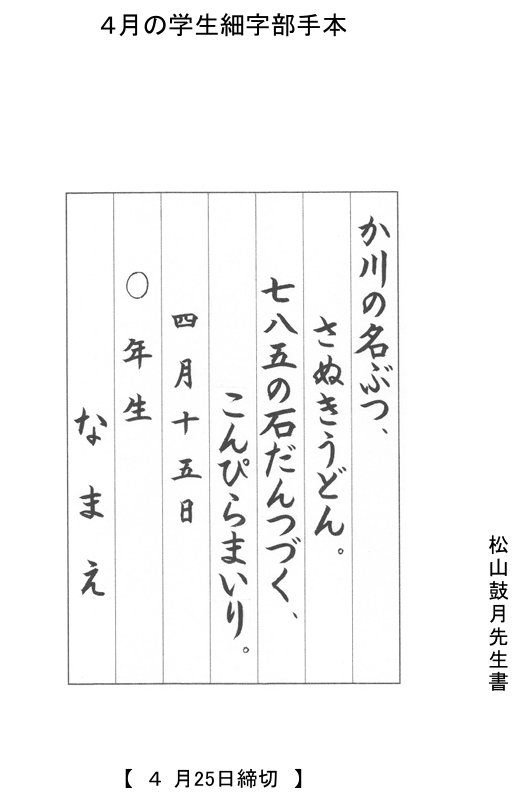 ４月の学生細字部手本
か川の名ぶつ、
さぬきうどん。
七八五の石だんつづく、
こんぴらまいり。
四月十五日
〇年生
なまえ
松山鼓月先生書
【 ４ 月25日締切 】